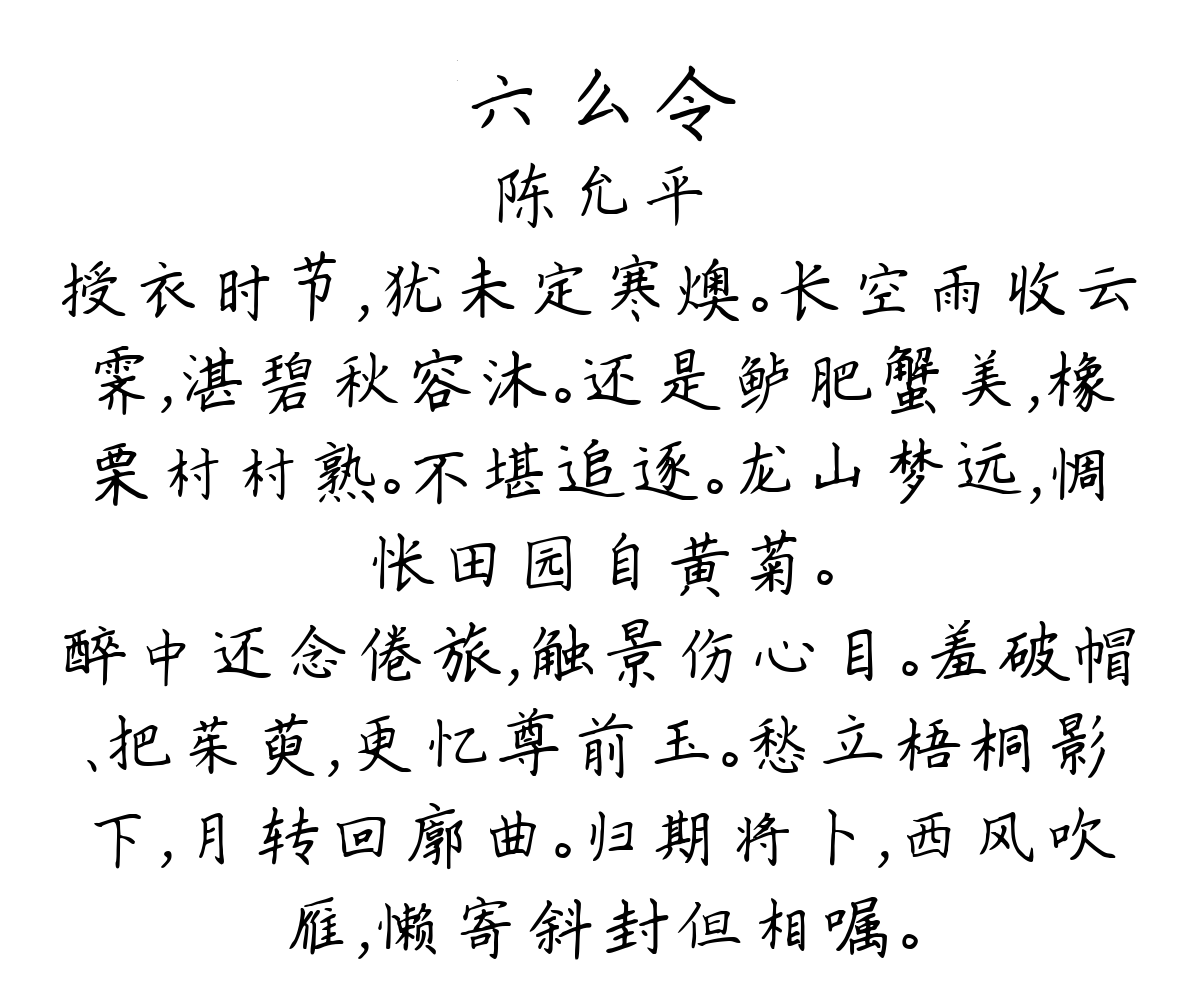 六么令
陈允平
授衣时节,犹未定寒燠。长空雨收云
霁,湛碧秋容沐。还是鲈肥蟹美,橡
栗村村熟。不堪追逐。龙山梦远,惆
怅田园自黄菊。
醉中还念倦旅,触景伤心目。羞破帽
、把茱萸,更忆尊前玉。愁立梧桐影
下,月转回廓曲。归期将卜,西风吹
雁,懒寄斜封但相嘱。